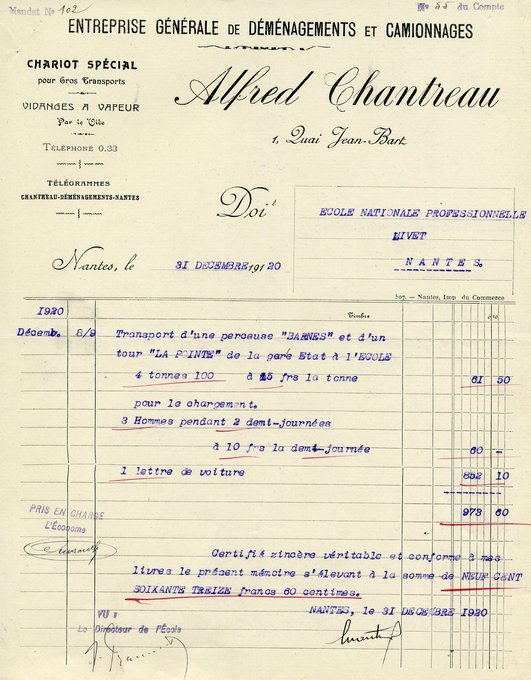 Mandat No 102
No 55 du Compte
ENTREPRISE GÉNÉRALE DE DÉMÉNAGEMENTS ET CAMIONNAGES
CHARIOT SPÉCIAL
pour Gros Transports
VIDANGES A VAPEUR
Par le Vide
TÉLÉPHONE 0.33
TÉLÉGRAMMES
CHANTREAU-DÉMÉNAGEMENTS-NANTES
Alfred Chantreau
1, Quai Jean-Bart
Doit
ECOLE NATIONALE PROFESSIONNELLE
LIVET
NANTES.
Nantes, le 31 DECEMBRE 1920
507. - Nantes, Imp du Commerce
1920 Timbre 0,10
Décemb. 8/9 Transport d'une perceuse "BARNES" et d'un
tour "LA POINTE" de la gare Etat à l'ECOLE
4 tonnes 100 à 15 frs la tonne 61 50
pour le chargement.
3 Hommes pendant 2 demi-journées
à 10 frs la demi-journée 60 -
1 lettre de voiture 852 10
973 60
PRIS EN CHARGE
L'Économe
Certifié sincère véritable et conforme à mes
livres le présent mémoire s'élevant à la somme de NEUF CENT
SOIXANTE TREIZE francs 60 centimes.
NANTES, le 31 DECEMBRE 1920
VU :
Le Directeur de l'École